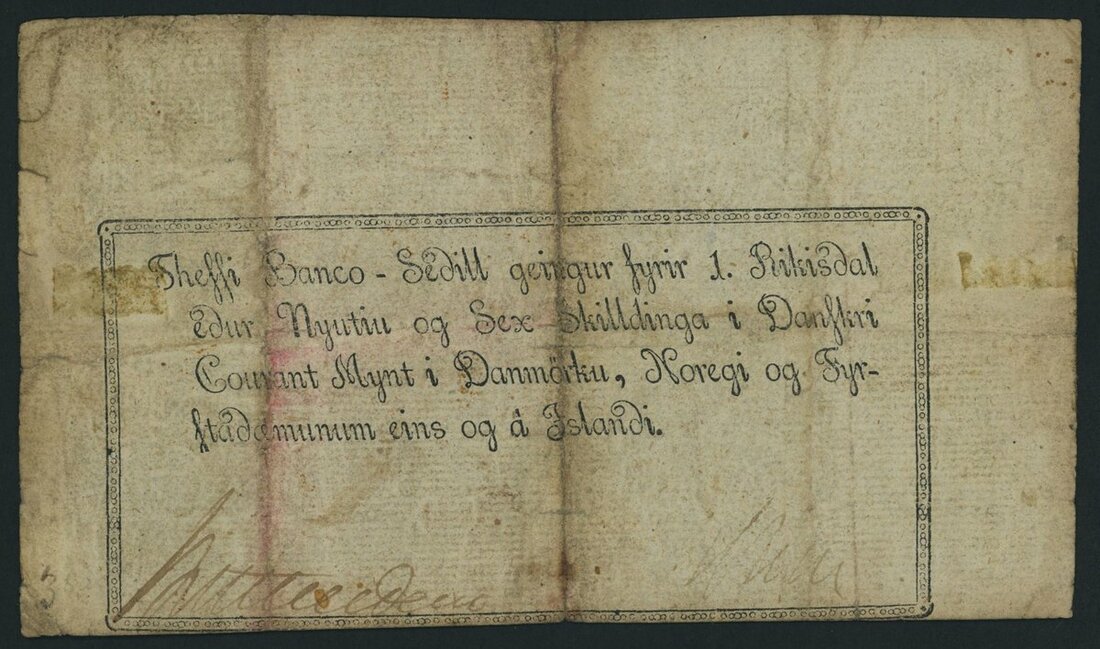 Theſſi Banco - Sêdill geingur fyrir 1. Rikisdal
êdur Nyutiu og Sex Skilldinga i Danſkri
Courant Mynt i Danmörku, Noregi og Fyr-
ſtadæmunum eins og â Islandi.